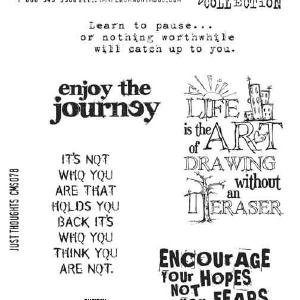 COLLECTION
Learn to pause...
or nothing worthwhile
will catch up to you.
enjoy the
journey
LIFE
is the ART
of
DRAWING
without
an
ERASER
IT'S NOT
WHO YOU
ARE THAT
HOLDS YOU
BACK IT'S
WHO YOU
THINK YOU
ARE NOT.
JUST THOUGHTS CMS078
ENCOURAGE
YOUR HOPES
NOT
FEARS